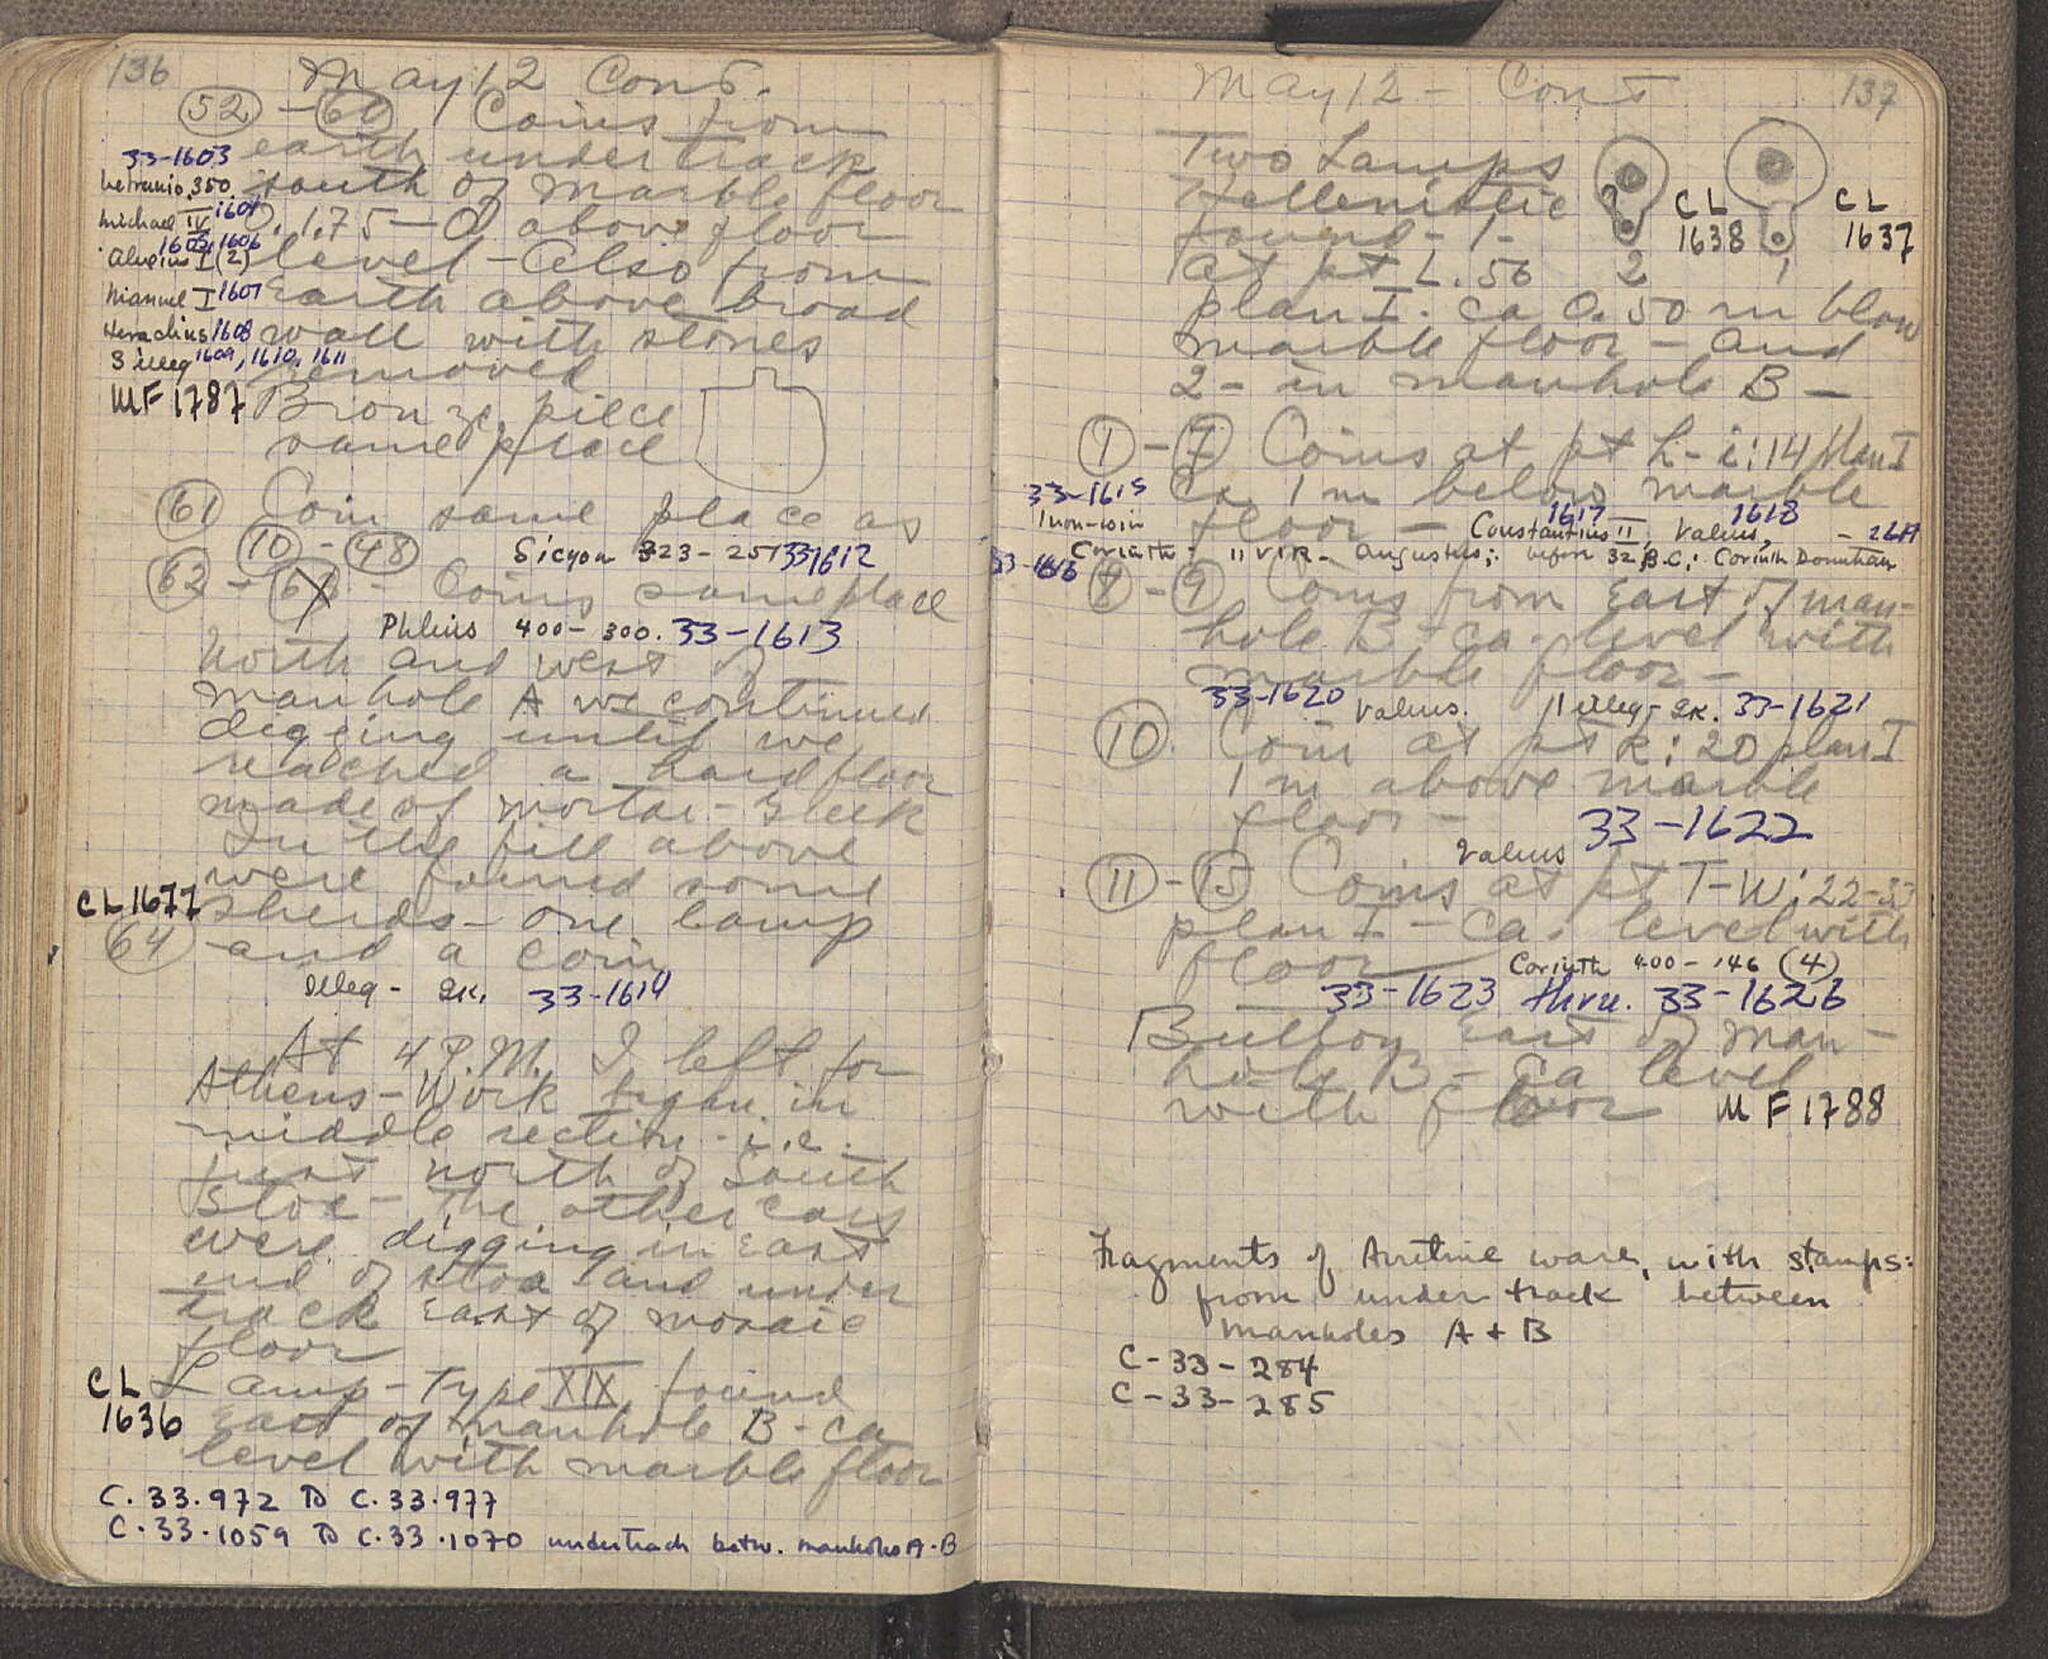 136
May 12 Cont.
52 - 60 Coins from
33-1603 earth under track
Vetranio 350 south of marble floor
Michael IV 1604 0.175-0 above floor
1605, 1606
Alexius I (2) level - Also from
Manuel I 1607 Earth above broad
Heraclius 1608 wall with stones
3 illeg 1609, 1610, 1611 removed
MF 1787 Bronze piece
same place
61 Coin same place as
10 - 48 Sicyon 323-251 33 1612
62 - - Coins same place
Phlius 400-300. 33-1613
North and west of
manhole A we continued
digging until we
reached a hard floor
made of mortar - Greek
In the fill above
were found some
CL 1677 sherds - one lamp
64 and a coin
Illeg - Gk. 33-1614
At 4 P.M. I left for
Athens - Work began in
middle section - i.e.
just north of South
Stoa - The other cars
were digging in East
end of stoa and under
track East of mosaic
floor
CL Lamp - Type XIX found
1636 East of manhole B - ca
level with marble floor
C.33.972 to C.33.977
C.33.1059 to C.33.1070 under track betw. manholes A-B
137
May 12 - Cont
Two Lamps
Hellenistic CL 1638 CL 1637
found - 1 -
at pt L.56 2 1
plan I. ca 0.50 m blow
marble floor - and
2 - in manhole B -
1 - 7 Coins at pt h-i:14 Plan I
33-1615 Ca 1 m below marble
1 non-coin floor - Constantius II 1617, Valens, 1618
Corinth - II VIR - Augustus; before 32 B.C.; Corinth Domitian
33-1616 8 - 9 Coins from East of man-
hole B - ca. level with
marble floor -
33-1620 Valens. 1 illeg - Gk. 33-1621
10. Coin at pt R:20 plan I
1 m above marble
floor -
Valens 33-1622
11 - 15 Coins at pt T-W:22-33
plan I - Ca. level with
floor Corinth 400-146 (4)
33-1623 thru. 33-1626
Button East of man-
hole B - Ca level
with floor MF 1788
Fragments of Arretine ware, with stamps:
from under track between
manholes A + B
C-33-284
C-33-285